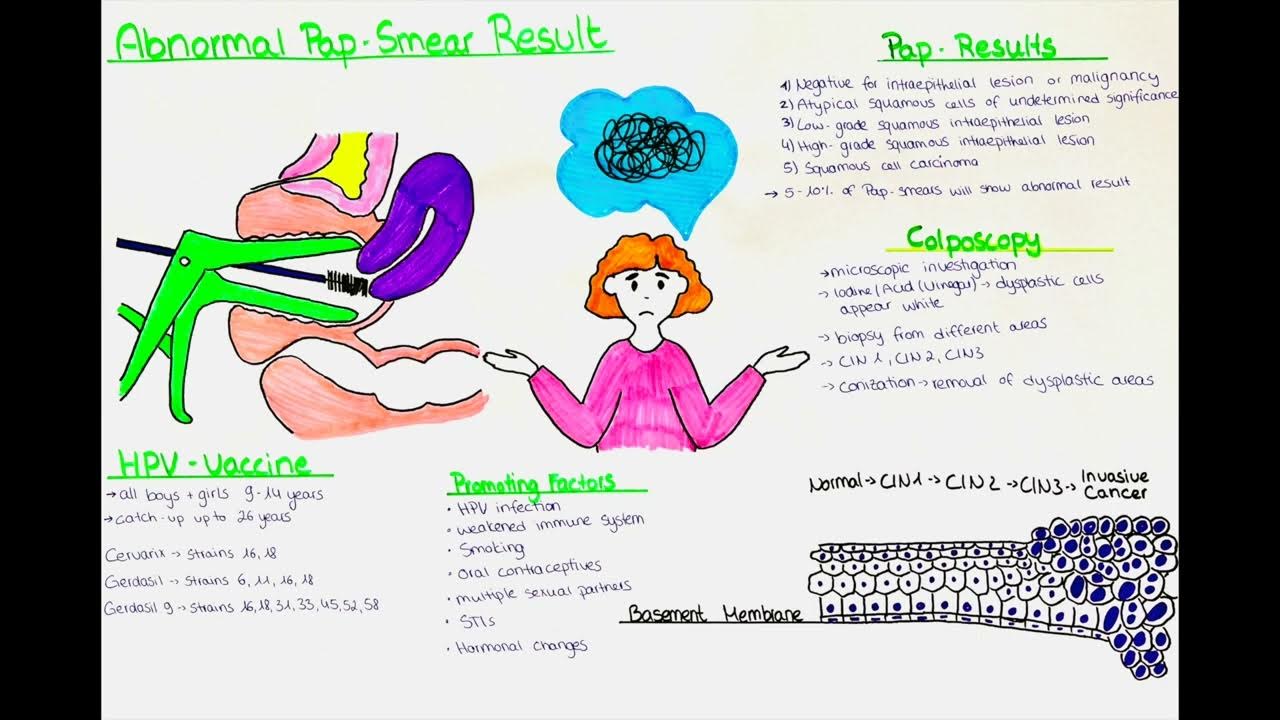 Abnormal Pap-Smear Result
Pap-Results
1) Negative for intraepithelial lesion or malignancy
2) Atypical squamous cells of undetermined significance
3) Low-grade squamous intraepithelial lesion
4) High-grade squamous intraepithelial lesion
5) Squamous cell carcinoma
→ 5-10% of Pap-smears will show abnormal result
Colposcopy
→ microscopic investigation
→ Iodine/Acid (Vinegar) → dysplastic cells
appear white
→ biopsy from different areas
→ CIN 1, CIN 2, CIN3
→ conization → removal of dysplastic areas
HPV-vaccine
→ all boys + girls 9-14 years
→ catch-up up to 26 years
Cervarix → strains 16, 18
Gerdasil → strains 6, 11, 16, 18
Gerdasil 9 → strains 16,18,31,33,45,52,58
Promoting Factors
• HPV infection
• weakened immune system
• Smoking
• oral contraceptives
• multiple sexual partners
• STIs
• Hormonal changes
Normal → CIN1 → CIN 2 → CIN3 → Invasive
Cancer
Basement Membrane